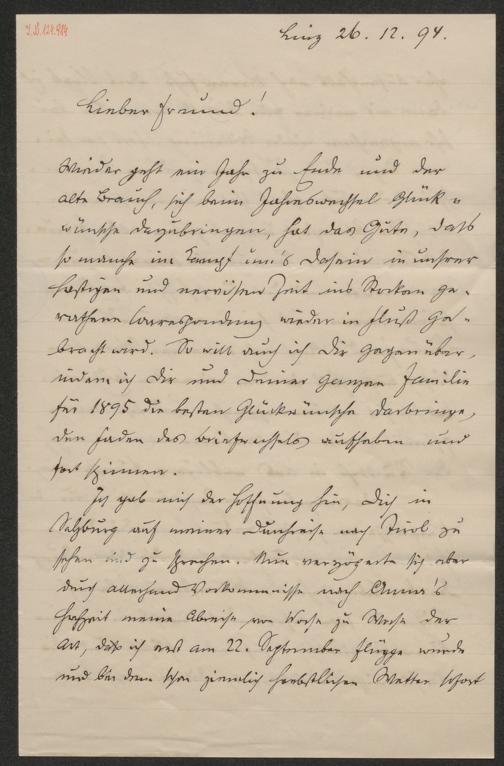 I.N. 124.984
Linz 26. 12. 94.
Lieber Freund!
Wieder geht ein Jahr zu Ende und der
alte Brauch, sich beim Jahreswechsel Glück-
wünsche darzubringen, hat das Gute, dass
so manche im Kampf um's Dasein in unsrer
hastigen und nervösen Zeit ins Stocken ge-
rathene Correspondenz wieder in Fluß ge-
bracht wird. So will auch ich Dir gegenüber,
indem ich Dir und Deiner ganzen Familie
für 1895 die besten Glückwünsche darbringe,
den Faden des Briefwechsels aufheben und
fort spinnen.
Ich gab mich der Hoffnung hin, Dich in
Salzburg auf meiner Durchreise nach Tirol zu
sehen und zu sprechen. Nun verzögerte sich aber
durch allerhand Vorkommnisse nach Anna's
Hochzeit meine Abreise von Woche zu Woche der
Art, daß ich erst am 22. September flügge wurde
und bei dem schon ziemlich herbstlichen Wetter sofort